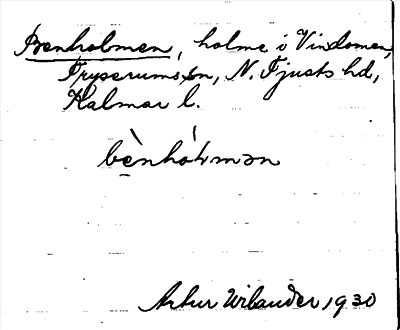 Benholmen, holme i Vindomen,
Tryserums sn, N. Tjusts hd,
Kalmar l.
bènhóɫmən
Artur Wilander 1930